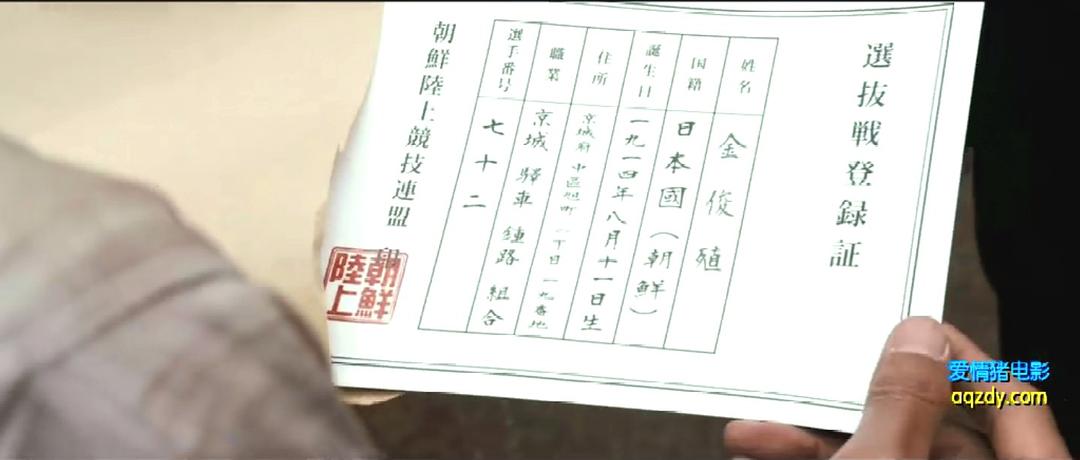 選抜戦登録証
姓名
金俊殖
国籍
日本國(朝鮮)
誕生日
一九一四年八月十一日生
住所
京城府中區旭町一丁目一九番地
職業
京城 驛車 鍾路 組合
選手番号
七十二
朝鮮陸上競技連盟
朝鮮
陸上
爱情猪电影
aqzdy.com